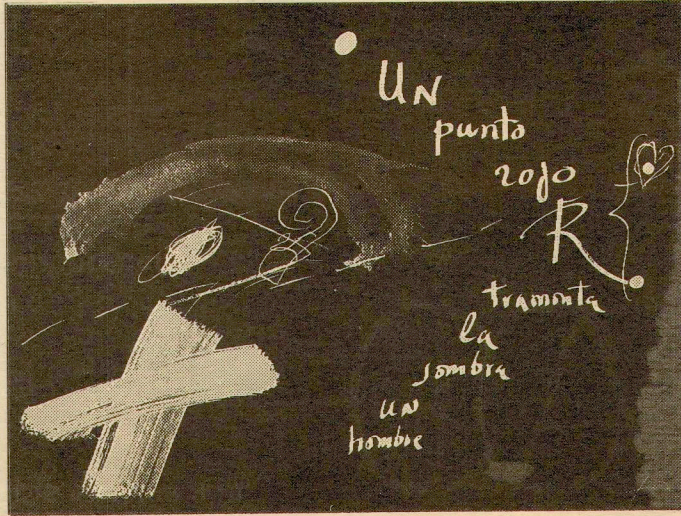 UN
punto
rojo
R
tramonta
la
sombra
un
hombre